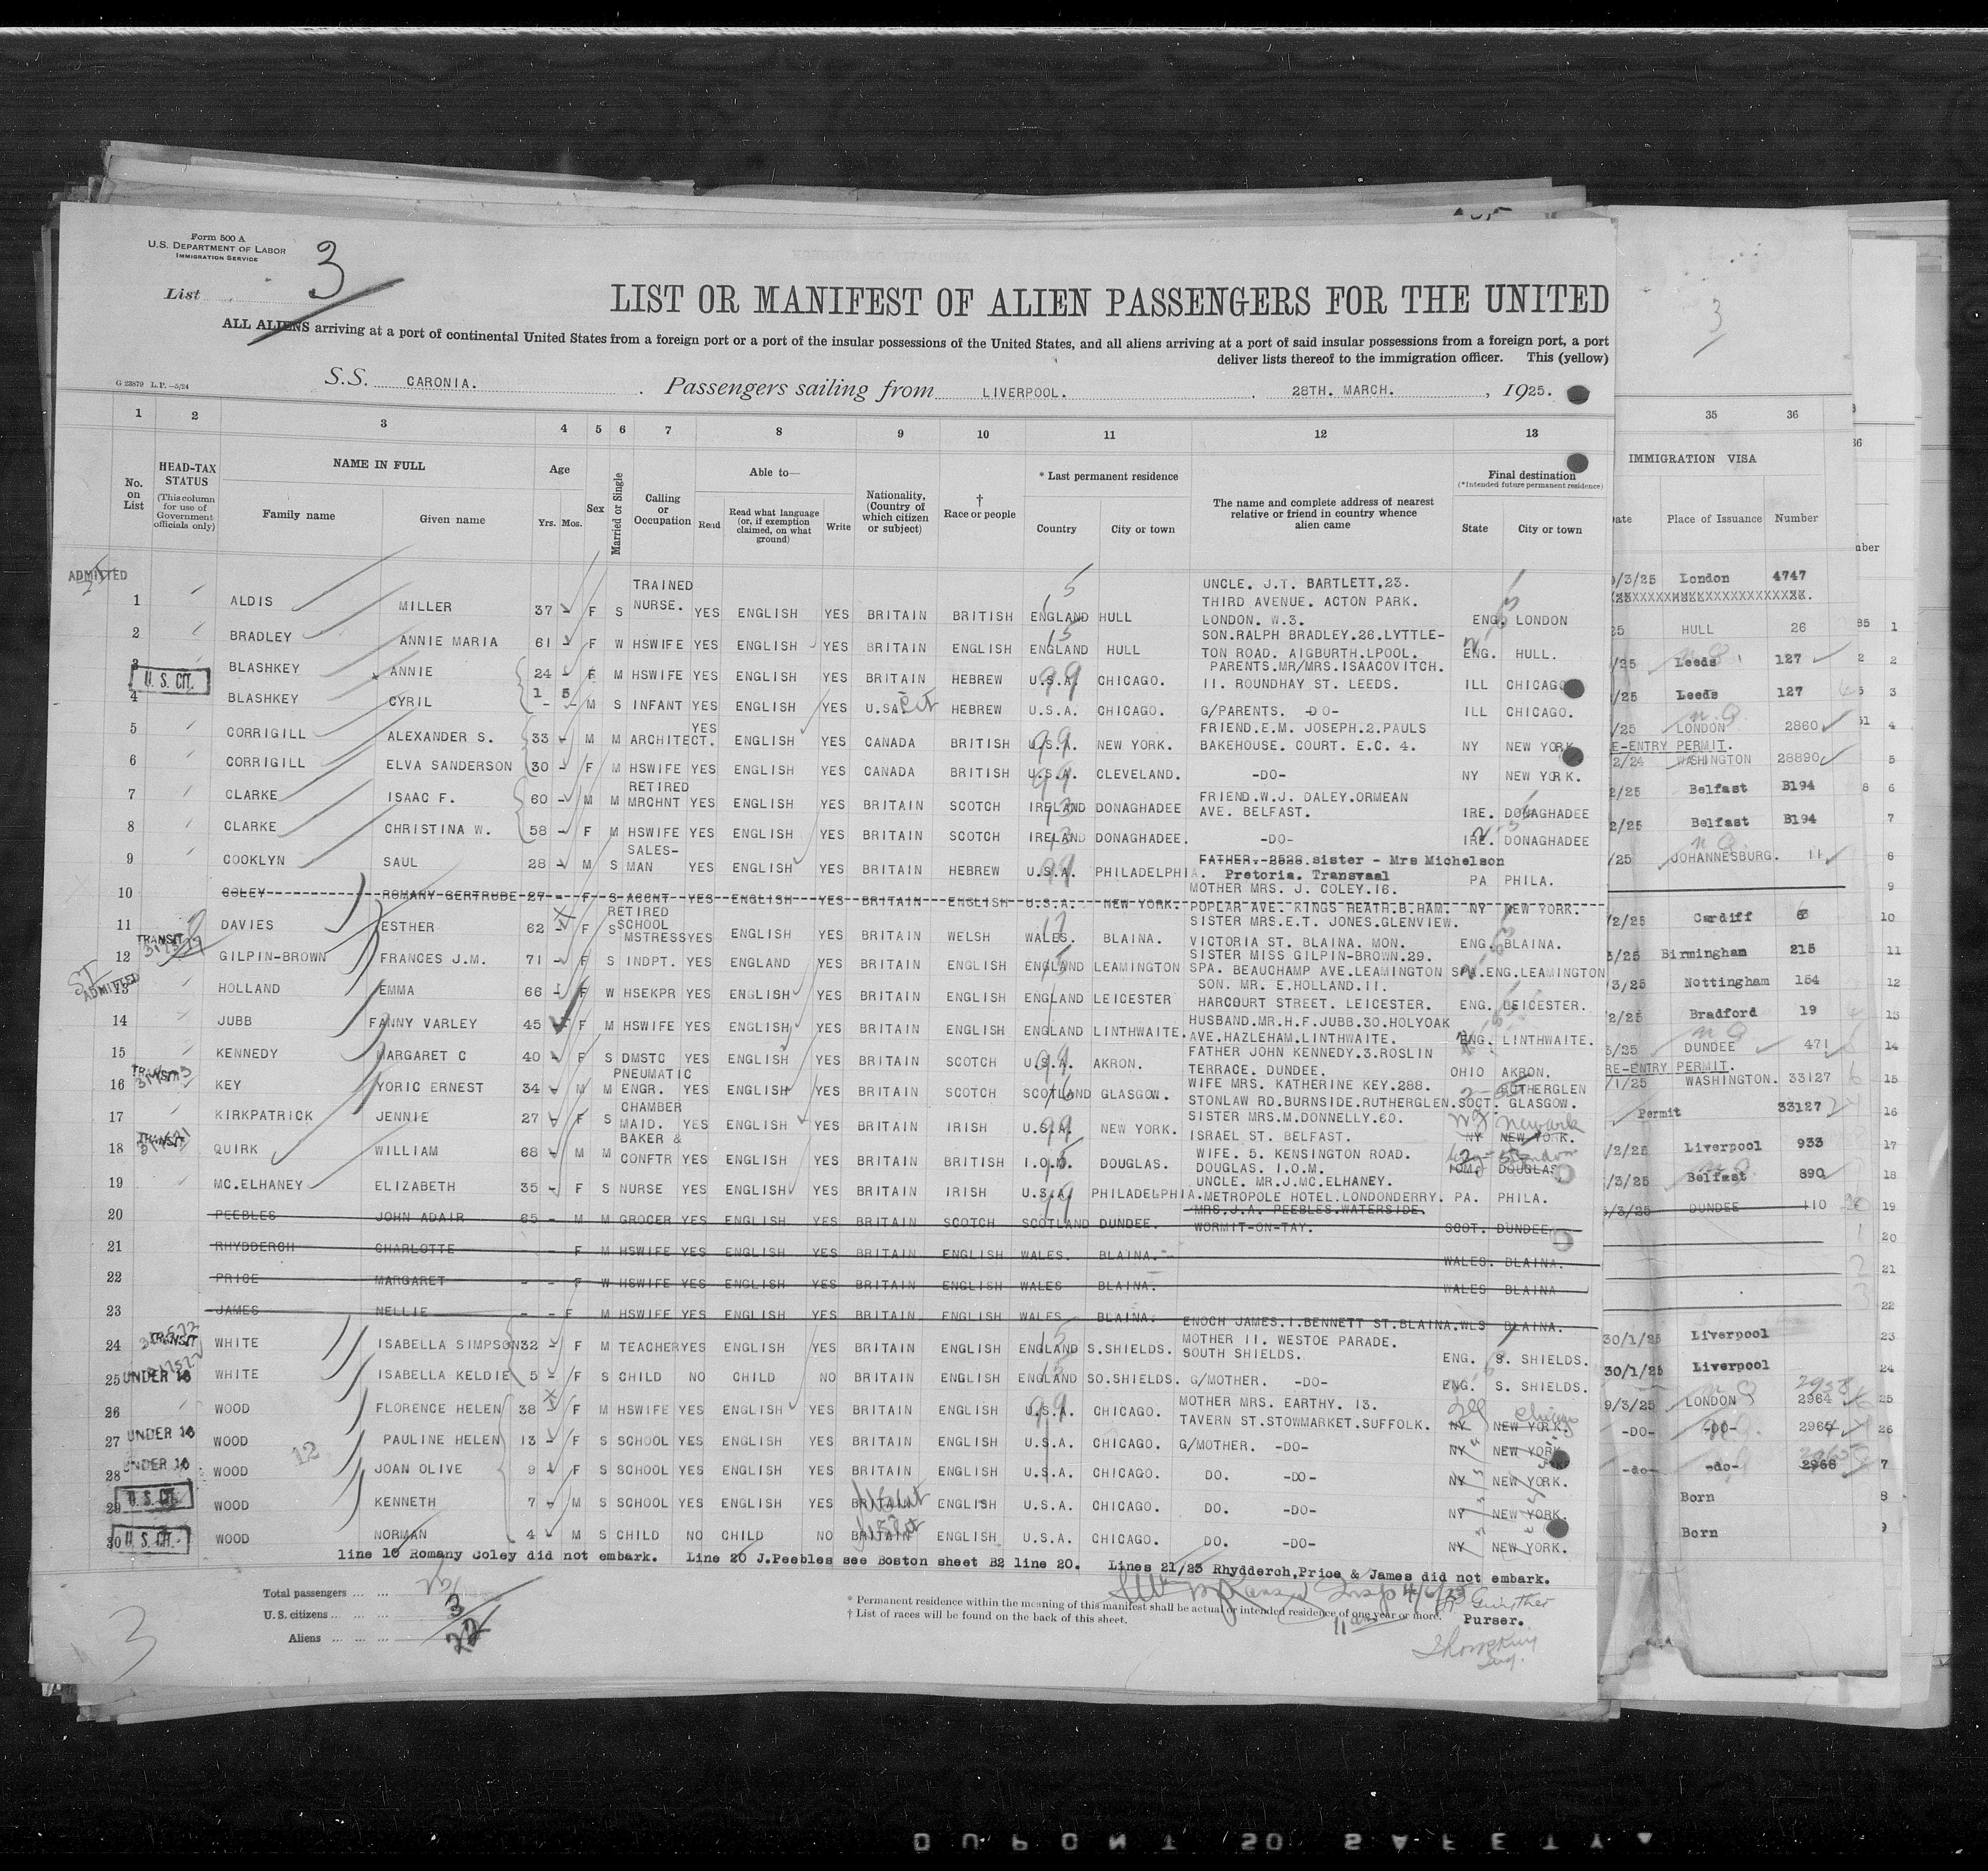 Form 500 A
U.S. DEPARTMENT OF LABOR
IMMIGRATION SERVICE
List 3
3
LIST OR MANIFEST OF ALIEN PASSENGERS FOR THE UNITED
ALL ALIENS arriving at a port of continental United States from a foreign port or a port of the insular possessions of the United States, and all aliens arriving at a port of said insular possessions from a foreign port, a port
deliver lists thereof to the immigration officer. This (yellow)
G 23879 L.P.—5/24
S.S. CARONIA. Passengers sailing from LIVERPOOL. 28TH. MARCH. , 1925.
1 2 3 4 5 6 7 8 9 10 11 12 13 35 36
No. on List
HEAD-TAX STATUS (This column for use of Government officials only)
NAME IN FULL
Family name Given name
Age Yrs. Mos.
Sex
Married or Single
Calling or Occupation
Able to—
Read Read what language (or, if exemption claimed, on what ground) Write
Nationality, (Country of which citizen or subject)
† Race or people
* Last permanent residence
Country City or town
The name and complete address of nearest relative or friend in country whence alien came
Final destination
(*Intended future permanent residence)
State City or town
IMMIGRATION VISA
Date Place of Issuance Number
ADMITTED
1 ALDIS MILLER 37 - F S TRAINED NURSE. YES ENGLISH YES BRITAIN BRITISH ENGLAND HULL UNCLE. J.T. BARTLETT.23. THIRD AVENUE. ACTON PARK. LONDON. W.3. ENG. LONDON
2 BRADLEY ANNIE MARIA 61 - F W HSWIFE YES ENGLISH YES BRITAIN ENGLISH ENGLAND HULL SON.RALPH BRADLEY.26.LYTTLE-TON ROAD. AIGBURTH.LPOOL. ENG. HULL.
3 U. S. CIT. BLASHKEY ANNIE 24 - F M HSWIFE YES ENGLISH YES BRITAIN HEBREW U.S.A. CHICAGO. PARENTS.MR/MRS.ISAACOVITCH. 11. ROUNDHAY ST. LEEDS. ILL CHICAGO
4 BLASHKEY CYRIL 1 5 M S INFANT YES ENGLISH YES U.SA. cit HEBREW U.S.A. CHICAGO. G/PARENTS. -DO- ILL CHICAGO.
5 CORRIGILL ALEXANDER S. 33 - M M ARCHITECT. YES ENGLISH YES CANADA BRITISH U.S.A. NEW YORK. FRIEND.E.M. JOSEPH.2.PAULS BAKEHOUSE. COURT. E.C. 4. NY NEW YORK
6 CORRIGILL ELVA SANDERSON 30 - F M HSWIFE YES ENGLISH YES CANADA BRITISH U.S.A. CLEVELAND. -DO- NY NEW YORK.
7 CLARKE ISAAC F. 60 - M M RETIRED MRCHNT YES ENGLISH YES BRITAIN SCOTCH IRELAND DONAGHADEE FRIEND.W.J. DALEY.ORMEAN AVE. BELFAST. IRE. DONAGHADEE
8 CLARKE CHRISTINA W. 58 - F M HSWIFE YES ENGLISH YES BRITAIN SCOTCH IRELAND DONAGHADEE. -DO- IRE. DONAGHADEE
9 COOKLYN SAUL 28 - M S SALES-MAN YES ENGLISH YES BRITAIN HEBREW U.S.A. PHILADELPHIA. FATHER. 2528.sister - Mrs Michelson Pretoria. Transvaal PA PHILA.
10 COLEY ROMARY GERTRUDE 27 - F S ACCNT YES ENGLISH YES BRITAIN ENGLISH U.S.A. NEW YORK. MOTHER MRS. J. COLEY.16. POPLAR AVE. KINGS HEATH.B.HAM. NY NEW YORK.
11 DAVIES ESTHER 62 - F S RETIRED SCHOOL MSTRESS YES ENGLISH YES BRITAIN WELSH WALES. BLAINA. SISTER MRS.E.T. JONES.GLENVIEW. VICTORIA ST. BLAINA. MON. ENG. BLAINA.
12 TRANSIT GILPIN-BROWN FRANCES J.M. 71 - F S INDPT. YES ENGLAND YES BRITAIN ENGLISH ENGLAND LEAMINGTON SPA. SISTER MISS GILPIN-BROWN.29. BEAUCHAMP AVE.LEAMINGTON SPA.ENG.LEAMINGTON
13 ADMITTED HOLLAND EMMA 66 - F W HSEKPR YES ENGLISH YES BRITAIN ENGLISH ENGLAND LEICESTER SON. MR. E.HOLLAND.11. HARCOURT STREET. LEICESTER. ENG. LEICESTER.
14 JUBB FANNY VARLEY 45 F M HSWIFE YES ENGLISH YES BRITAIN ENGLISH ENGLAND LINTHWAITE. HUSBAND.MR.H.F.JUBB.30.HOLYOAK AVE.HAZLEHAM.LINTHWAITE. ENG. LINTHWAITE.
15 KENNEDY MARGARET C 40 - F S DMSTC YES ENGLISH YES BRITAIN SCOTCH U.S.A. AKRON. FATHER JOHN KENNEDY.3.ROSLIN TERRACE. DUNDEE. OHIO AKRON.
16 TRANSIT KEY YORIC ERNEST 34 M M PNEUMATIC ENGR. YES ENGLISH YES BRITAIN SCOTCH SCOTLAND GLASGOW. WIFE MRS. KATHERINE KEY.288. STONLAW RD.BURNSIDE.RUTHERGLEN.SOCT. RUTHERGLEN GLASGOW.
17 KIRKPATRICK JENNIE 27 F S CHAMBER MAID. YES ENGLISH YES BRITAIN IRISH U.S.A. NEW YORK. SISTER MRS.M.DONNELLY.60. ISRAEL ST. BELFAST. NY NEW YORK. NJ Newark
18 TRANSIT QUIRK WILLIAM 68 M M BAKER & CONFTR YES ENGLISH YES BRITAIN BRITISH I.O.M. DOUGLAS. WIFE. 5. KENSINGTON ROAD. DOUGLAS. I.O.M. IOM. DOUGLAS
19 MC.ELHANEY ELIZABETH 35 - F S NURSE YES ENGLISH YES BRITAIN IRISH U.S.A. PHILADELPHIA. UNCLE. MR.J.MC.ELHANEY. METROPOLE HOTEL.LONDONDERRY. PA. PHILA.
20 PEEBLES JOHN ADAIR 65 - M M GROCER YES ENGLISH YES BRITAIN SCOTCH SCOTLAND DUNDEE. MRS.J.A. PEEBLES.WATERSIDE. WORMIT-ON-TAY. SCOT. DUNDEE.
21 RHYDDERCH CHARLOTTE - - F M HSWIFE YES ENGLISH YES BRITAIN ENGLISH WALES. BLAINA. WALES. BLAINA.
22 PRICE MARGARET - - F W HSWIFE YES ENGLISH YES BRITAIN ENGLISH WALES BLAINA. WALES BLAINA
23 JAMES NELLIE - - F M HSWIFE YES ENGLISH YES BRITAIN ENGLISH WALES BLAINA. ENOCH JAMES.1.BENNETT ST.BLAINA.WLS BLAINA.
24 TRANSIT WHITE ISABELLA SIMPSON 32 - F M TEACHER YES ENGLISH YES BRITAIN ENGLISH ENGLAND S.SHIELDS. MOTHER 11. WESTOE PARADE. SOUTH SHIELDS. ENG. S. SHIELDS.
25 UNDER 16 WHITE ISABELLA KELDIE 5 - F S CHILD NO CHILD NO BRITAIN ENGLISH ENGLAND SO.SHIELDS. G/MOTHER. -DO- ENG. S. SHIELDS.
26 WOOD FLORENCE HELEN 38 F M HSWIFE YES ENGLISH YES BRITAIN ENGLISH U.S.A. CHICAGO. MOTHER MRS. EARTHY. 13. TAVERN ST.STOWMARKET.SUFFOLK. NY NEW YORK. Ill Chicago
27 UNDER 16 WOOD PAULINE HELEN 13 - F S SCHOOL YES ENGLISH YES BRITAIN ENGLISH U.S.A. CHICAGO. G/MOTHER. -DO- NY NEW YORK
28 UNDER 16 WOOD JOAN OLIVE 9 F S SCHOOL YES ENGLISH YES BRITAIN ENGLISH U.S.A. CHICAGO. DO. -DO- NY NEW YORK.
29 U. S. CIT. WOOD KENNETH 7 - M S SCHOOL YES ENGLISH YES BRITAIN US cit ENGLISH U.S.A. CHICAGO. DO. -DO- NY NEW YORK.
30 U. S. CIT. WOOD NORMAN 4 - M S CHILD NO CHILD NO BRITAIN US cit ENGLISH U.S.A. CHICAGO. DO. -DO- NY NEW YORK.
12
line 10 Romany Coley did not embark. Line 20 J.Peebles see Boston sheet B2 line 20. Lines 21/23 Rhydderch,Price & James did not embark.
Total passengers
U.S. citizens 3
Aliens 22
* Permanent residence within the meaning of this manifest shall be actual or intended residence of one year or more.
† List of races will be found on the back of this sheet.
Insp 4/6/25
Purser.
3
/3/25 London 4747
25 HULL 26
/25 Leeds 127
/25 Leeds 127
/25 LONDON 2860
E-ENTRY PERMIT.
2/24 WASHINGTON 28890
2/25 Belfast B194
2/25 Belfast B194
/25 JOHANNESBURG. 11
/2/25 Cardiff
3/25 Birmingham 215
3/25 Nottingham 154
2/25 Bradford 19
3/25 DUNDEE 471
RE-ENTRY PERMIT.
/1/25 WASHINGTON. 33127
Permit 33127
/2/25 Liverpool 933
/3/25 Belfast 890
3/25 DUNDEE 110
30/1/25 Liverpool
30/1/25 Liverpool
9/3/25 LONDON 2964
-DO- -DO- 2964
-do- -do- 2966
Born
Born
DUPONT SO SAFETY